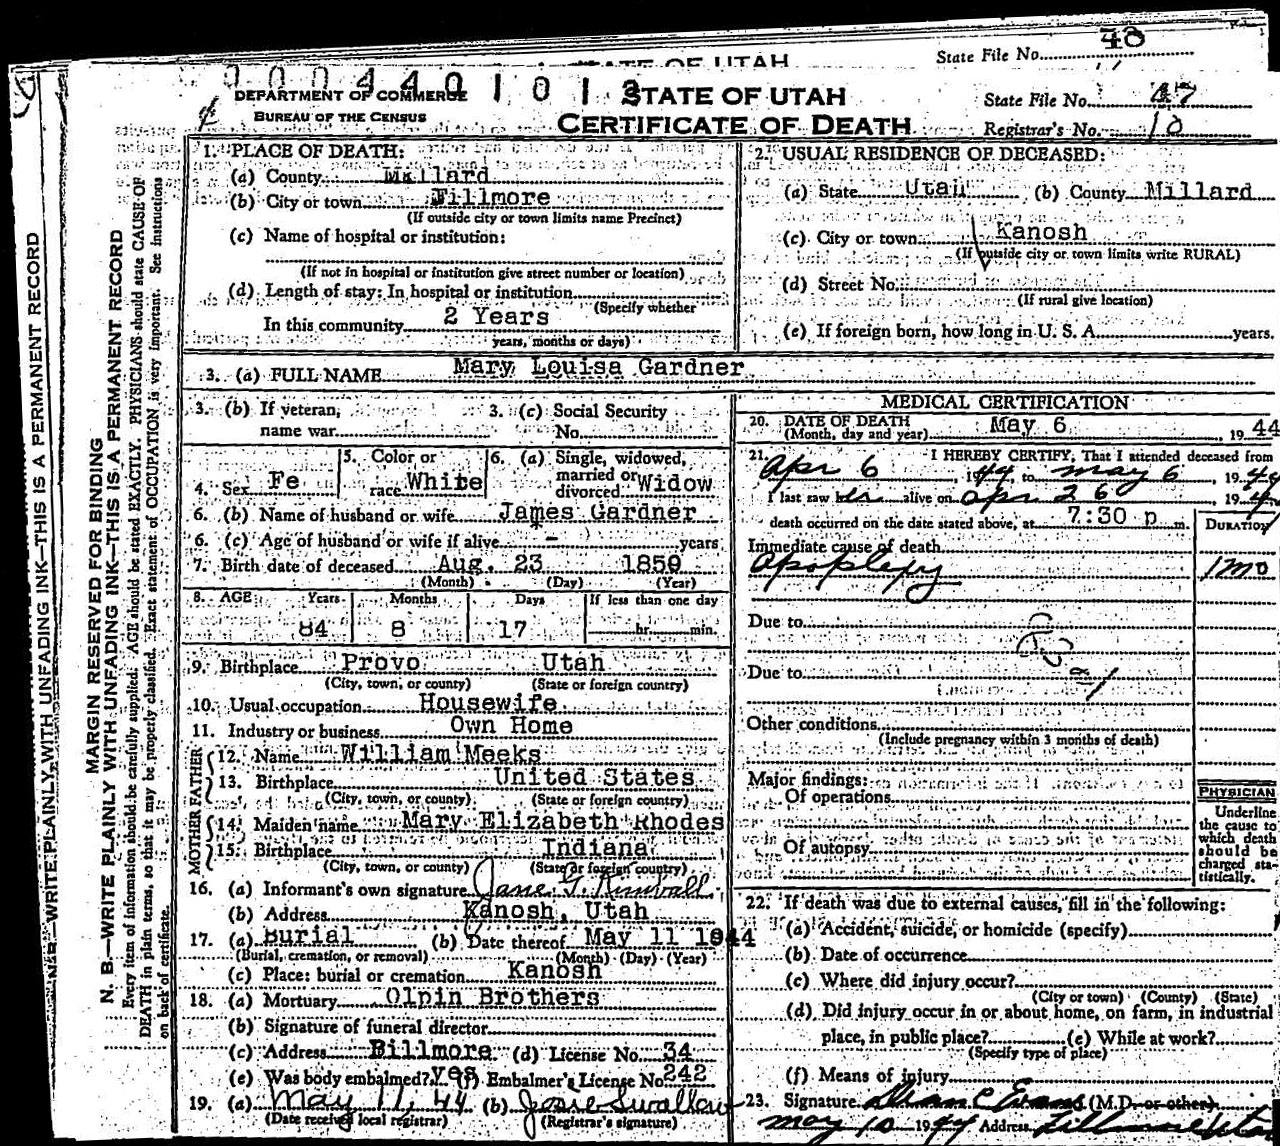 State File No. 48
STATE OF UTAH
0 0 0 4 4 0 1 0 1 3
DEPARTMENT OF COMMERCE
BUREAU OF THE CENSUS
STATE OF UTAH
CERTIFICATE OF DEATH
State File No. 47
Registrar's No. 10
N. B.—WRITE PLAINLY WITH UNFADING INK—THIS IS A PERMANENT RECORD
MARGIN RESERVED FOR BINDING
N. B.—WRITE PLAINLY WITH UNFADING INK—THIS IS A PERMANENT RECORD
Every item of information should be carefully supplied. AGE should be stated EXACTLY. PHYSICIANS should state CAUSE OF
DEATH in plain terms, so that it may be properly classified. Exact statement of OCCUPATION is very important. See instructions
on back of certificate.
1. PLACE OF DEATH:
(a) County Millard
(b) City or town Fillmore
(If outside city or town limits name Precinct)
(c) Name of hospital or institution:
(If not in hospital or institution give street number or location)
(d) Length of stay: In hospital or institution
(Specify whether
In this community 2 Years
years, months or days)
2. USUAL RESIDENCE OF DECEASED:
(a) State Utah (b) County Millard
(c) City or town Kanosh
(If outside city or town limits write RURAL)
(d) Street No.
(If rural give location)
(e) If foreign born, how long in U. S. A. years.
3. (a) FULL NAME Mary Louisa Gardner
3. (b) If veteran, name war
3. (c) Social Security No.
4. Sex Fe
5. Color or race White
6. (a) Single, widowed, married or divorced Widow
6. (b) Name of husband or wife James Gardner
6. (c) Age of husband or wife if alive - years
7. Birth date of deceased Aug. 23 1859
(Month) (Day) (Year)
8. AGE Years Months Days If less than one day
84 8 17 hr. min.
9. Birthplace Provo Utah
(City, town, or county) (State or foreign country)
10. Usual occupation Housewife
11. Industry or business Own Home
FATHER
12. Name William Meeks
13. Birthplace United States
(City, town, or county) (State or foreign country)
MOTHER
14. Maiden name Mary Elizabeth Rhodes
15. Birthplace Indiana
(City, town, or county) (State or foreign country)
16. (a) Informant's own signature Jane G. Kimball
(b) Address Kanosh, Utah
17. (a) Burial (b) Date thereof May 11 1944
(Burial, cremation, or removal) (Month) (Day) (Year)
(c) Place: burial or cremation Kanosh
18. (a) Mortuary Olpin Brothers
(b) Signature of funeral director
(c) Address Billmore (d) License No. 34
(e) Was body embalmed? yes (f) Embalmer's License No. 242
19. (a) May 11, 44 (b) Josie Swallow
(Date received local registrar) (Registrar's signature)
MEDICAL CERTIFICATION
20. DATE OF DEATH
(Month, day and year) May 6, 1944
21. I HEREBY CERTIFY, That I attended deceased from
Apr 6, 1944, to May 6, 1944
I last saw her alive on Apr 26 1944
death occurred on the date stated above, at 7:30 p m.
DURATION
Immediate cause of death
Apoplexy 1 mo
Due to
83a
Due to
Other conditions
(Include pregnancy within 3 months of death)
Major findings:
Of operations
Of autopsy
PHYSICIAN
Underline
the cause to
which death
should be
charged sta-
tistically.
22. If death was due to external causes, fill in the following:
(a) Accident, suicide, or homicide (specify)
(b) Date of occurrence
(c) Where did injury occur?
(City or town) (County) (State)
(d) Did injury occur in or about home, on farm, in industrial
place, in public place? (e) While at work?
(Specify type of place)
(f) Means of injury
23. Signature Dean C Evans (M.D. or other)
May 10 1944 Address Fillmore Utah